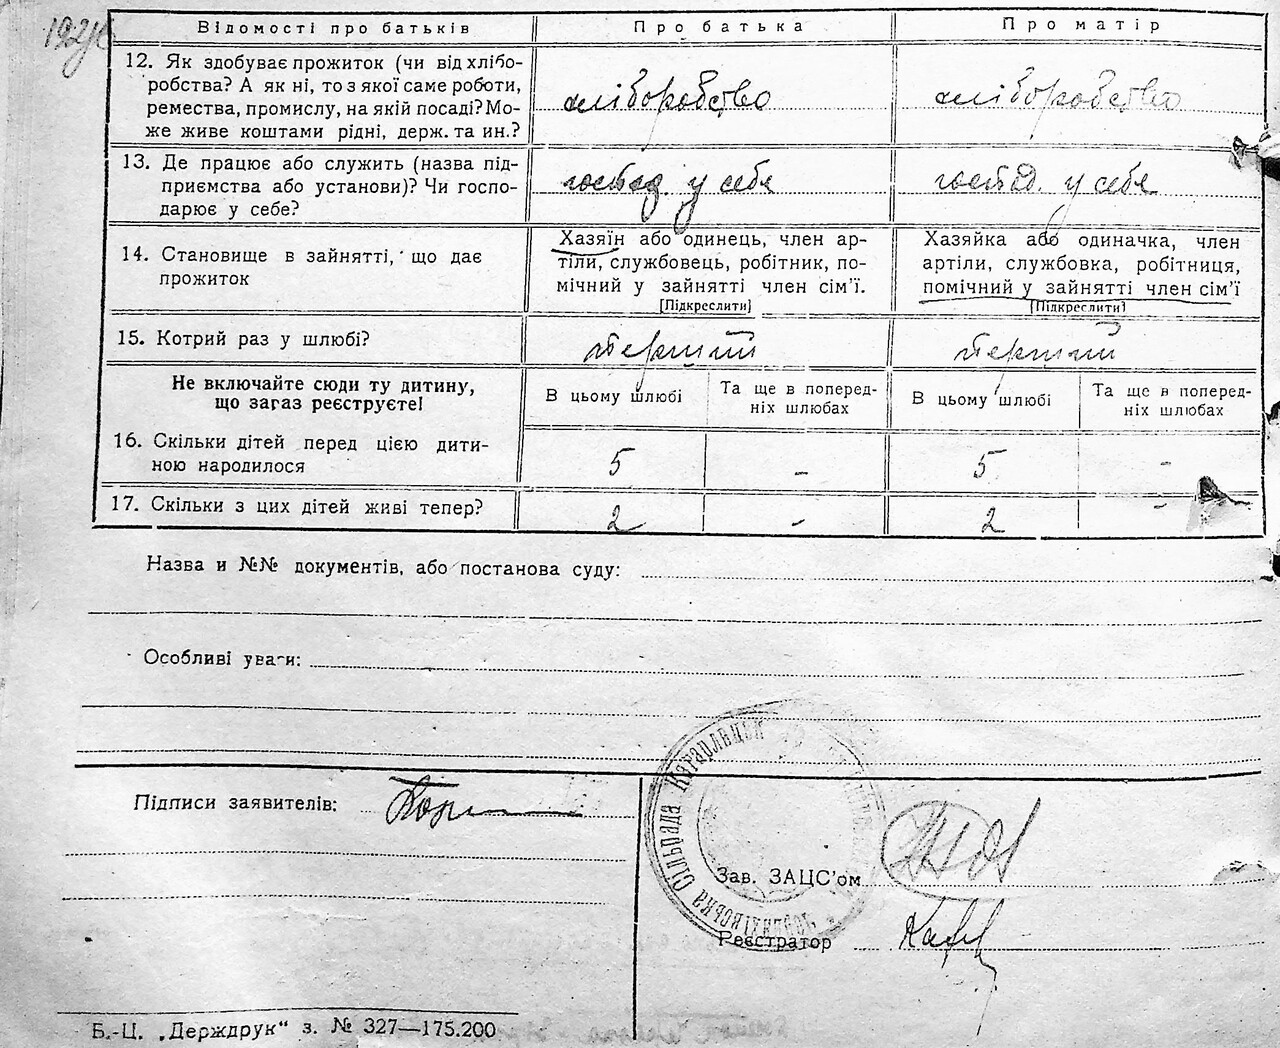 Відомості про батьків Про батька Про матір
12. Як здобуває прожиток (чи від хлібо-
робства? А як ні, то з якої саме роботи,
ремества, промислу, на якій посаді? Мо-
же живе коштами рідні, держ. та ин.?
хліборобство хліборобство
13. Де працює або служить (назва під-
приємства або установи)? Чи госпо-
дарює у себе?
господ. у себе господ. у себе
14. Становище в зайнятті, що дає
прожиток
Хазяїн або одинець, член ар-
тіли, службовець, робітник, по-
мічний у зайнятті член сім'ї.
[Підкреслити]
Хазяйка або одиначка, член
артіли, службовка, робітниця,
помічний у зайнятті член сім'ї
[Підкреслити]
15. Котрий раз у шлюбі? перший перший
Не включайте сюди ту дитину,
що загаз реєструєте!
В цьому шлюбі
Та ще в поперед-
ніх шлюбах
В цьому шлюбі
Та ще в поперед-
ніх шлюбах
16. Скільки дітей перед цією дити-
ною народилося
5 - 5 -
17. Скільки з цих дітей живі тепер? 2 - 2 -
Назва и №№ документів, або постанова суду:
Особливі уваги:
Підписи заявителів:
Сільрада Кагарлицьк
Зав. ЗАЦС'ом
Реєстратор
Б.-Ц. „Держдрук" з. № 327—175.200